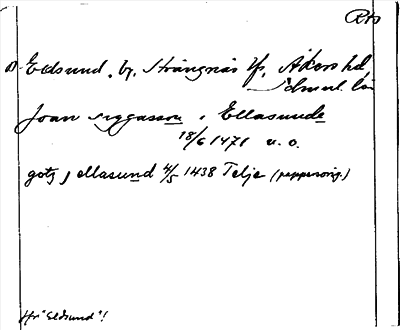 RAp
1) Edsund, by, Strängnäs lfs, Åkers hd
Sdmnl. län
Joan siggasson i Ellasunde
18/6 1471 u. o.
gotz j ellasund 4/5 1438 Telje (pappersorig.)
Hr "Eldsund"!